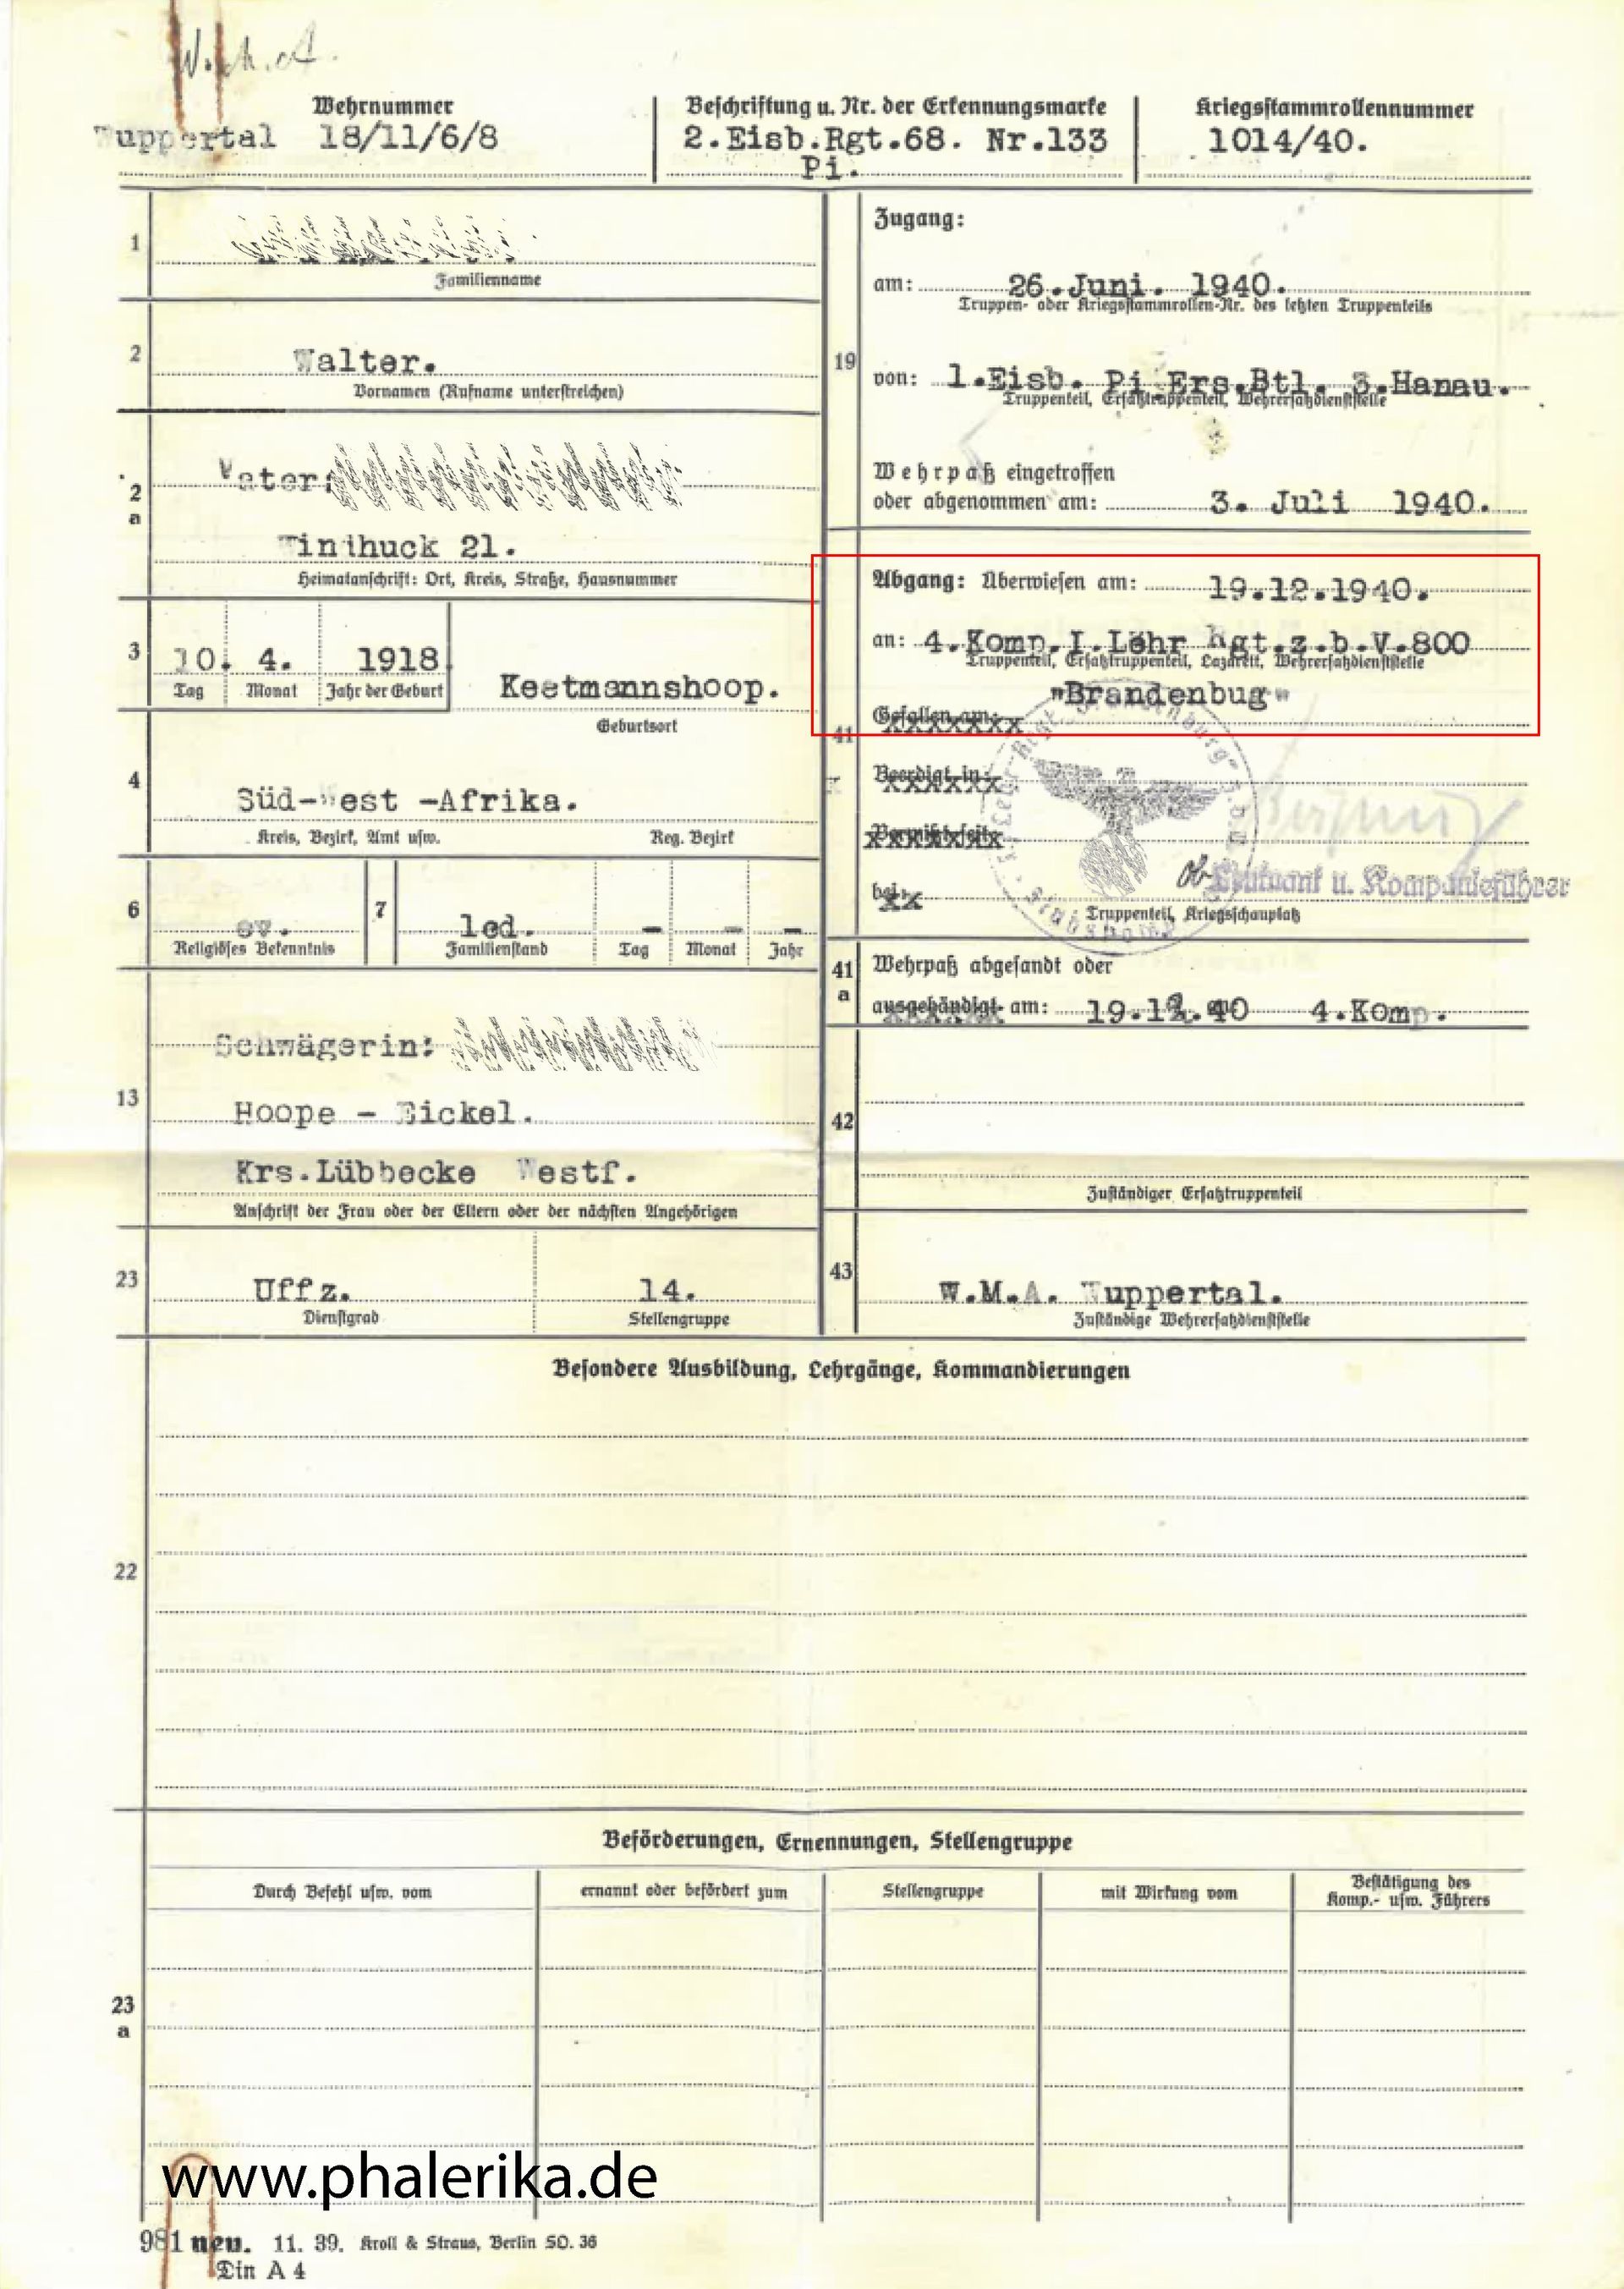 W.M.A.
Wehrnummer
Wuppertal 18/11/6/8
Beschriftung u. Nr. der Erkennungsmarke
2.Eisb.Rgt.68. Nr.133
Pi.
Kriegsstammrollennummer
1014/40.
1
Familienname
2
Walter.
Vornamen (Rufname unterstreichen)
2
a
Vater:
Windhuck 21.
Heimatanschrift: Ort, Kreis, Straße, Hausnummer
3
10. 4. 1918
Tag Monat Jahr der Geburt
Keetmannshoop.
Geburtsort
4
Süd-West -Afrika.
Kreis, Bezirk, Amt usw. Reg. Bezirk
6
ev.
Religiöses Bekenntnis
7
led. — — —
Familienstand Tag Monat Jahr
13
Schwägerin:
Hoope - Eickel.
Krs.Lübbecke Westf.
Anschrift der Frau oder der Eltern oder der nächsten Angehörigen
23
Uffz. 14.
Dienstgrad Stellengruppe
19
Zugang:
am: 26.Juni. 1940.
Truppen- oder Kriegsstammrollen-Nr. des letzten Truppenteils
von: 1.Eisb. Pi.Ers.Btl. 3.Hanau.
Truppenteil, Ersatztruppenteil, Wehrersatzdienststelle
Wehrpaß eingetroffen
oder abgenommen am: 3. Juli 1940.
41
Abgang: Überwiesen am: 19.12.1940.
an: 4.Komp.I.Lehr Rgt.z.b.V.800
Truppenteil, Ersatztruppenteil, Lazarett, Wehrersatzdienststelle
"Brandenbug"
Gefallen am:
Beerdigt in:
Vermißt seit:
bei:
Leutnant u. Kompanieführer
Truppenteil, Kriegsschauplatz
41
a
Wehrpaß abgesandt oder
ausgehändigt am: 19.12.40 4.Komp.
42
Zuständiger Ersatztruppenteil
43
W.M.A. Wuppertal.
Zuständige Wehrersatzdienststelle
Besondere Ausbildung, Lehrgänge, Kommandierungen
22
Beförderungen, Ernennungen, Stellengruppe
Durch Befehl usw. vom
ernannt oder befördert zum
Stellengruppe
mit Wirkung vom
Bestätigung des
Komp.- usw. Führers
23
a
www.phalerika.de
981 neu. 11. 39. Kroll & Straus, Berlin SO. 36
Din A 4